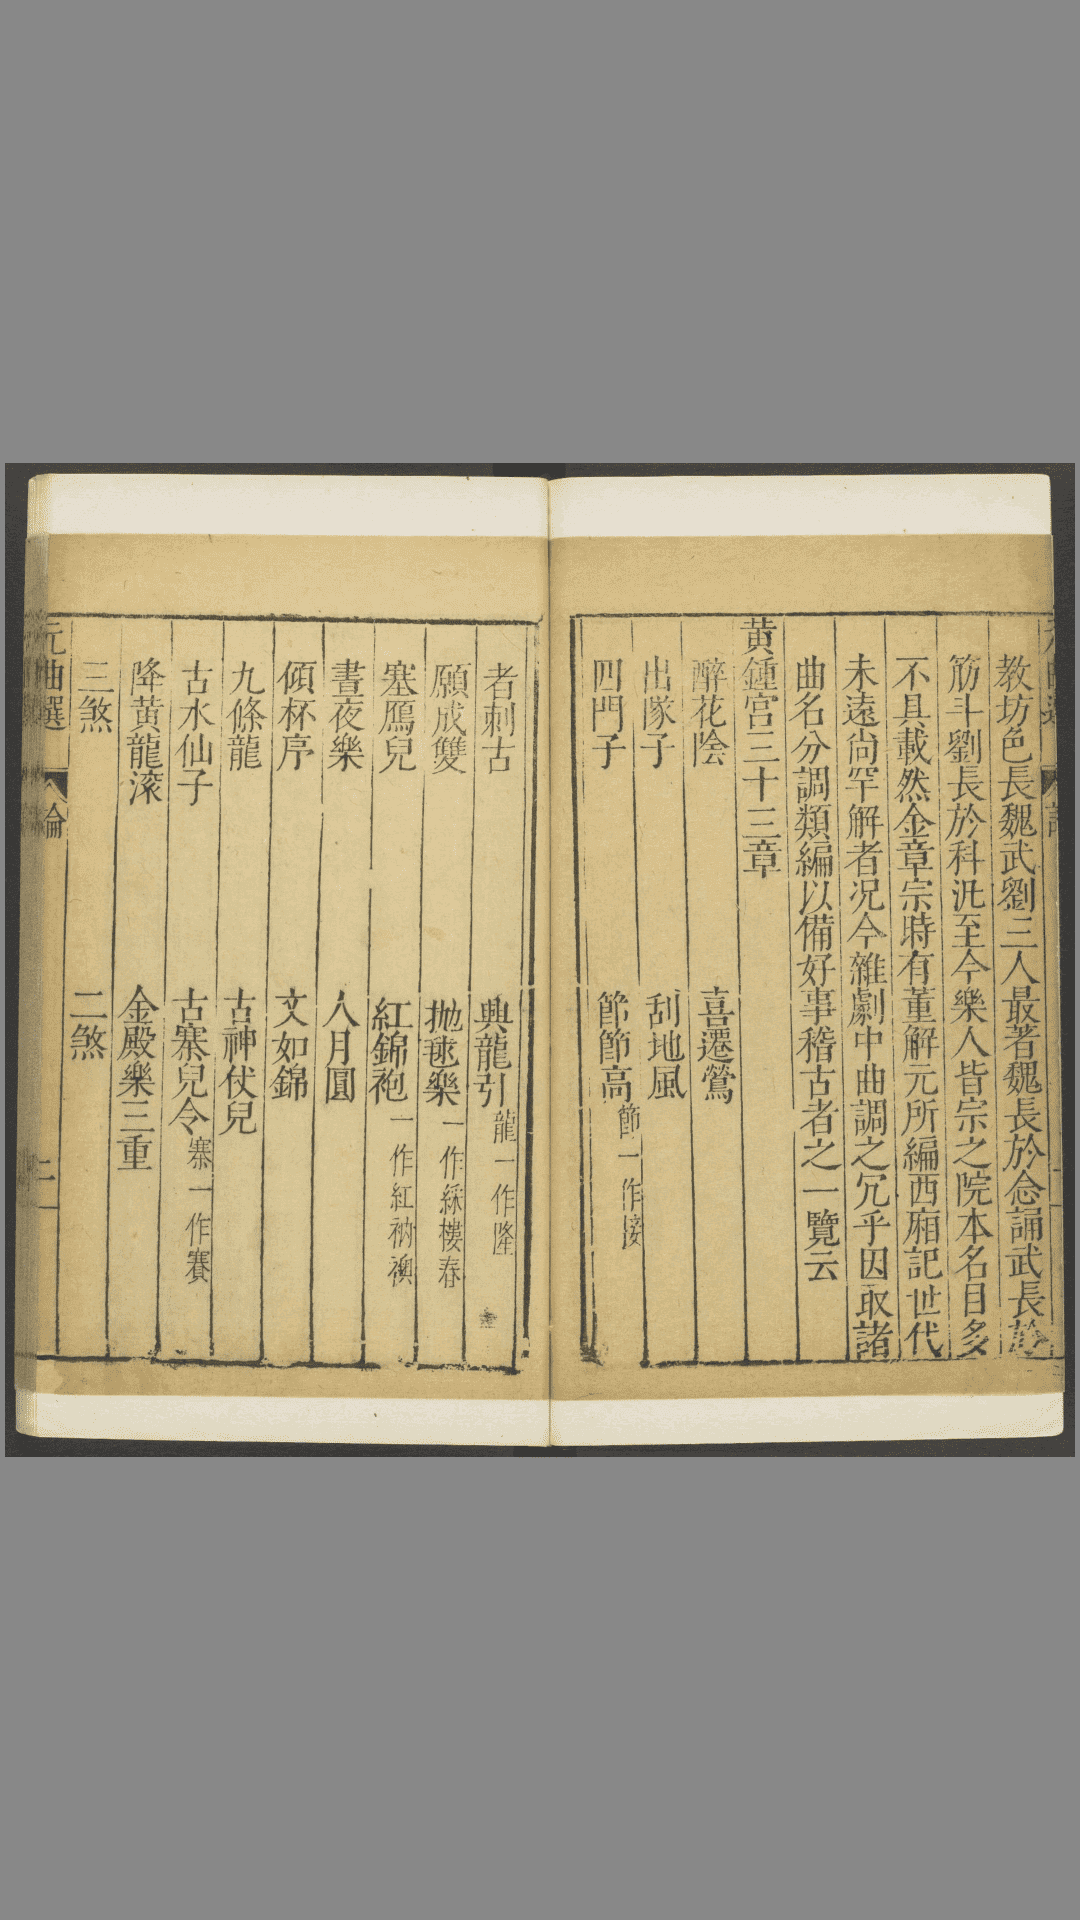 教坊色長魏武劉三人最著魏長於念誦武長於
筋斗劉長於科汎至今樂人皆宗之院本名目多
不具載然金章宗時有董解元所編西廂記世代
未遠尚罕解者況今雜劇中曲調之冗乎因取諸
曲名分調類編以備好事稽古者之一覽云
黃鍾宮三十三章
醉花陰 喜遷鶯
出隊子 刮地風
四門子 節節高節一作接
者刺古 興龍引龍一作隆
願成雙 拋毬樂一作綵樓春
塞鴈兒 紅錦袍一作紅衲襖
晝夜樂 人月圓
傾杯序 文如錦
九條龍 古神仗兒
古水仙子 古寨兒令寨一作賽
降黃龍滾 金殿樂三重
三煞 二煞
元曲選 論